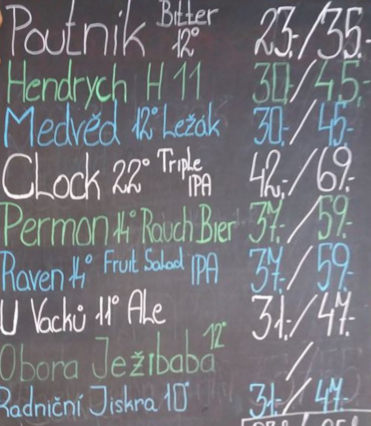 Poutnik Bitter 12° 23,-/35.-
Hendrych H 11 30/45,-
Medvěd 12° Ležák 30,-/45,-
CLock 22° Triple IPA 42,-/69,-
Permon 14° Rauch Bier 37,-/59,-
Raven 14° Fruit Salad IPA 37,-/59,-
U Vacků 11° Ale 31,-/47,-
Obora Ježibaba 12° /
Radniční Jiskra 10° 31,-/47,-